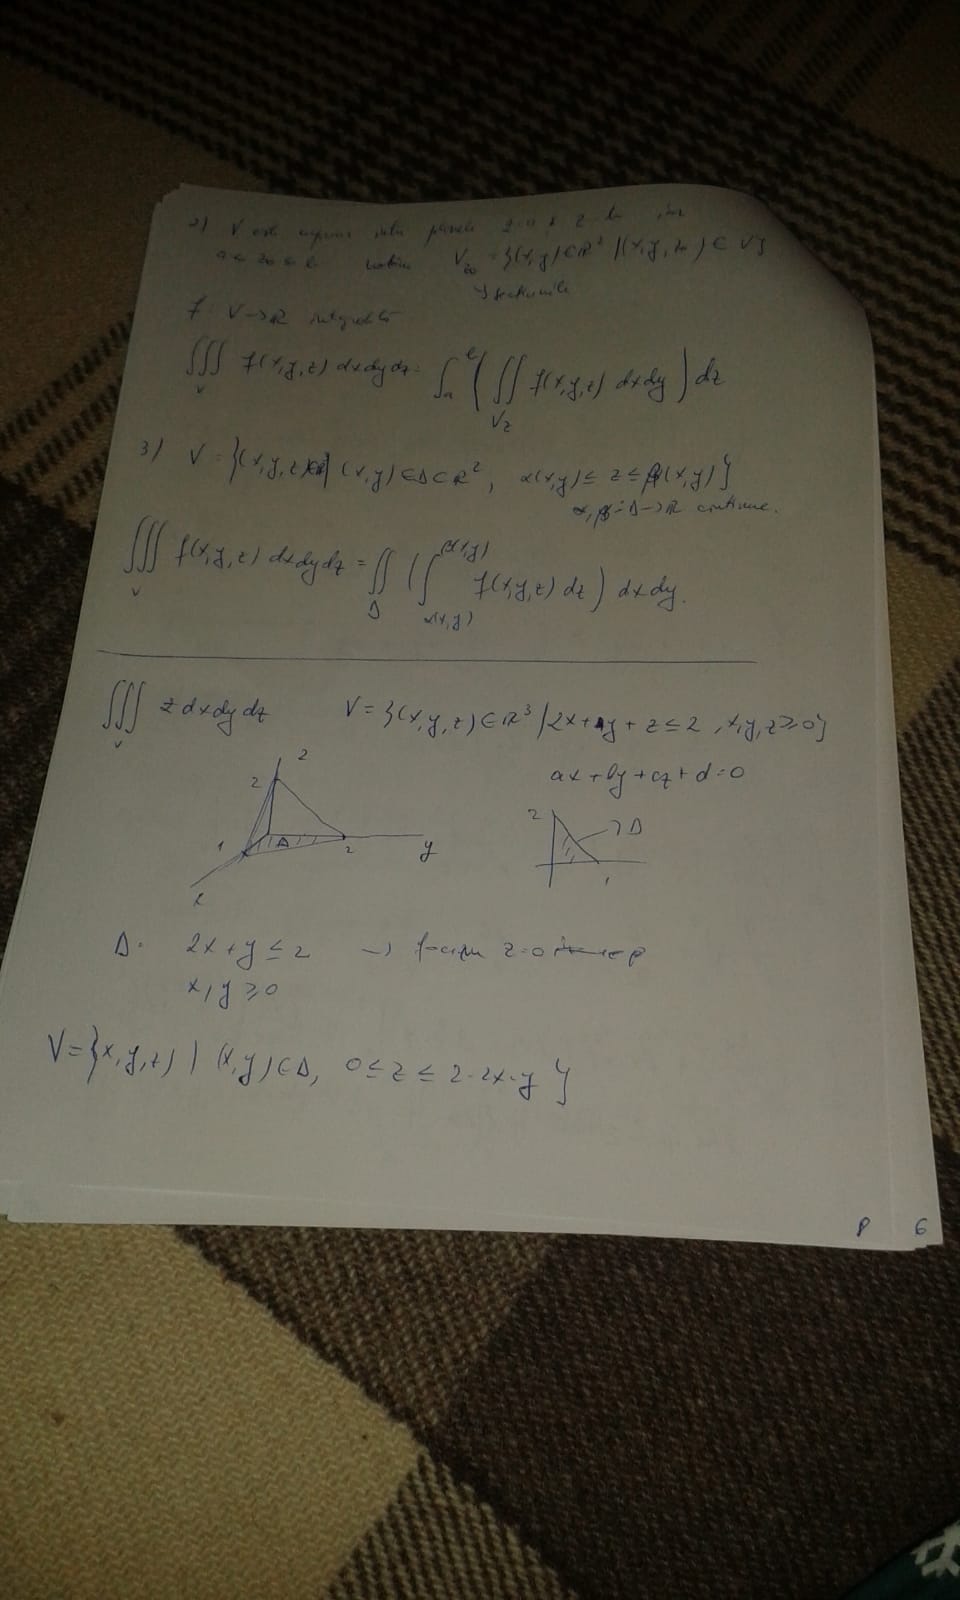 2) V este cuprins între planele z=a și z=b iar
a ≤ z₀ ≤ b notăm V_{z₀} = {(x,y)∈ℝ² | (x,y,z₀) ∈ V}
secțiunile
f: V→ℝ integrabilă
∭_V f(x,y,z) dxdydz = ∫_a^b ( ∬_{V_z} f(x,y,z) dxdy ) dz
3) V = {(x,y,z)∈ℝ³ | (x,y)∈Δ⊂ℝ², α(x,y) ≤ z ≤ β(x,y)}
α, β: Δ→ℝ continue.
∭_V f(x,y,z) dxdydz = ∬_Δ ( ∫_{α(x,y)}^{β(x,y)} f(x,y,z) dz ) dxdy.
∭_V z dxdydz V = {(x,y,z)∈ℝ³ | 2x+y+z ≤ 2, x,y,z ≥ 0}
ax+by+cz+d=0
z
2
1
Δ
2
y
x
2
Δ
1
Δ: 2x+y ≤ 2 → facem z=0
x,y ≥ 0
V = {x,y,z) | (x,y)∈Δ, 0 ≤ z ≤ 2-2x-y}
P 6